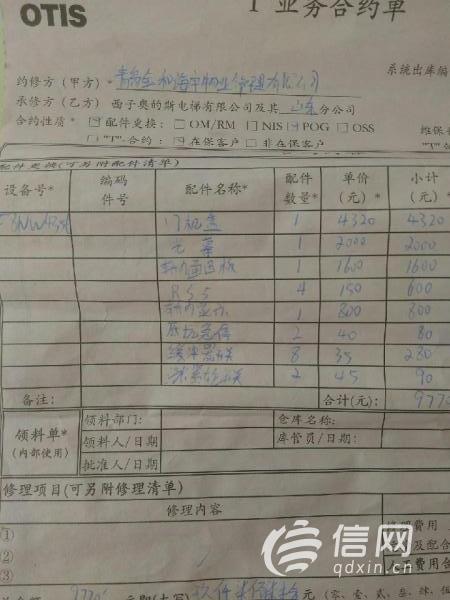 OTIS
T 业务合约单
系统出库编
约修方(甲方)* 青岛金和海平物业管理有限公司
承修方(乙方) 西子奥的斯电梯有限公司及其 山东 分公司
合约性质* 配件更换: OM/RM NIS POG OSS
"T"合约: 在保客户 非在保客户
维保
"T"
配件更换(可另附配件清单)
设备号* 编码件号 配件名称* 配件数量* 单价(元)* 小计(元)
门机盒 1 4320 4320
光幕 1 2000 2000
轿内通讯板 1 1600 1600
RS5 4 150 600
轿内显示 1 800 800
底坑急停 2 40 80
缓冲器开关 8 35 280
2 45 90
备注: 合计(元): 977
领料单*(内部使用)
领料部门: 仓库名称:
领料人/日期 库管员/日期:
批准人/日期
修理项目(可另附修理清单)
修理内容
①
②
③
修理费用
及配合
费用合
元 (零、壹、贰、叁、肆、伍
信网